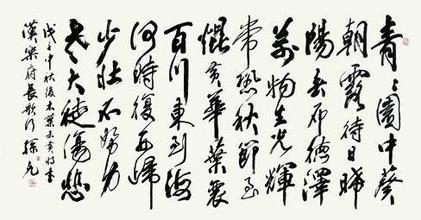 青〻園中葵
朝露待日晞
陽春布德澤
萬物生光輝
常恐秋節至
焜黃華葉衰
百川東到海
何時復西歸
少壯不努力
老大徒傷悲
戊子中秋後木葉未黃時書
漢樂府長歌行 孫